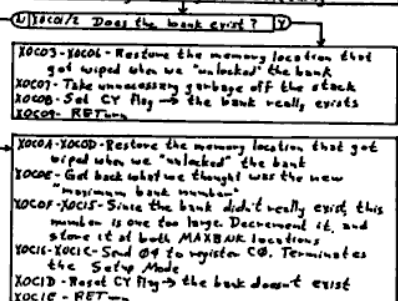 N X0C01/2 Does the bank exist? Y
X0C03-X0C06-Restore the memory location that
got wiped when we "unlocked" the bank
X0C07-Take unnecessary garbage off the stack
X0C08-Set CY flag → the bank really exists
X0C09-RETurn
X0C0A-X0C0D-Restore the memory location that got
wiped when we "unlocked" the bank
X0C0E-Get back what we thought was the new
"maximum bank number"
X0C0F-X0C15-Since the bank didn't really exist, this
number is one too large. Decrement it, and
store it at both MAXBNK locations
X0C16-X0C1C-Send 04 to register C0. Terminates
the Setup Mode
X0C1D-Reset CY flag → the bank doesn't exist
X0C1E-RETurn